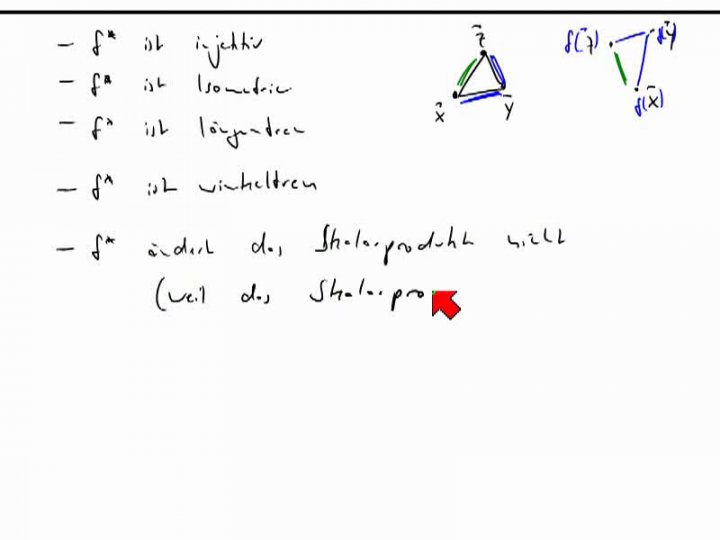 – f* ist injektiv
– f* ist Isometrie
– f* ist längentreu
– f* ist winkeltreu
– f* ändert das Skalarprodukt nicht
(weil das Skalarpro
z⃗
x⃗
y⃗
f(z⃗)
f(y⃗)
f(x⃗)